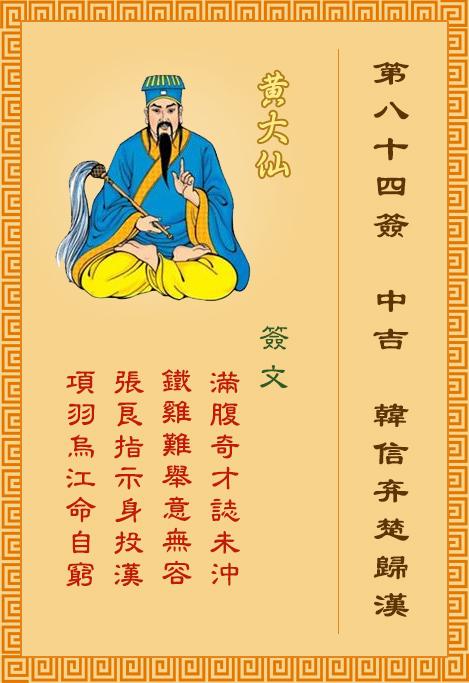 第八十四簽 中吉 韓信弃楚歸漢
黃大仙
簽文
滿腹奇才誌未沖
鐵雞難舉意無容
張良指示身投漢
項羽烏江命自窮